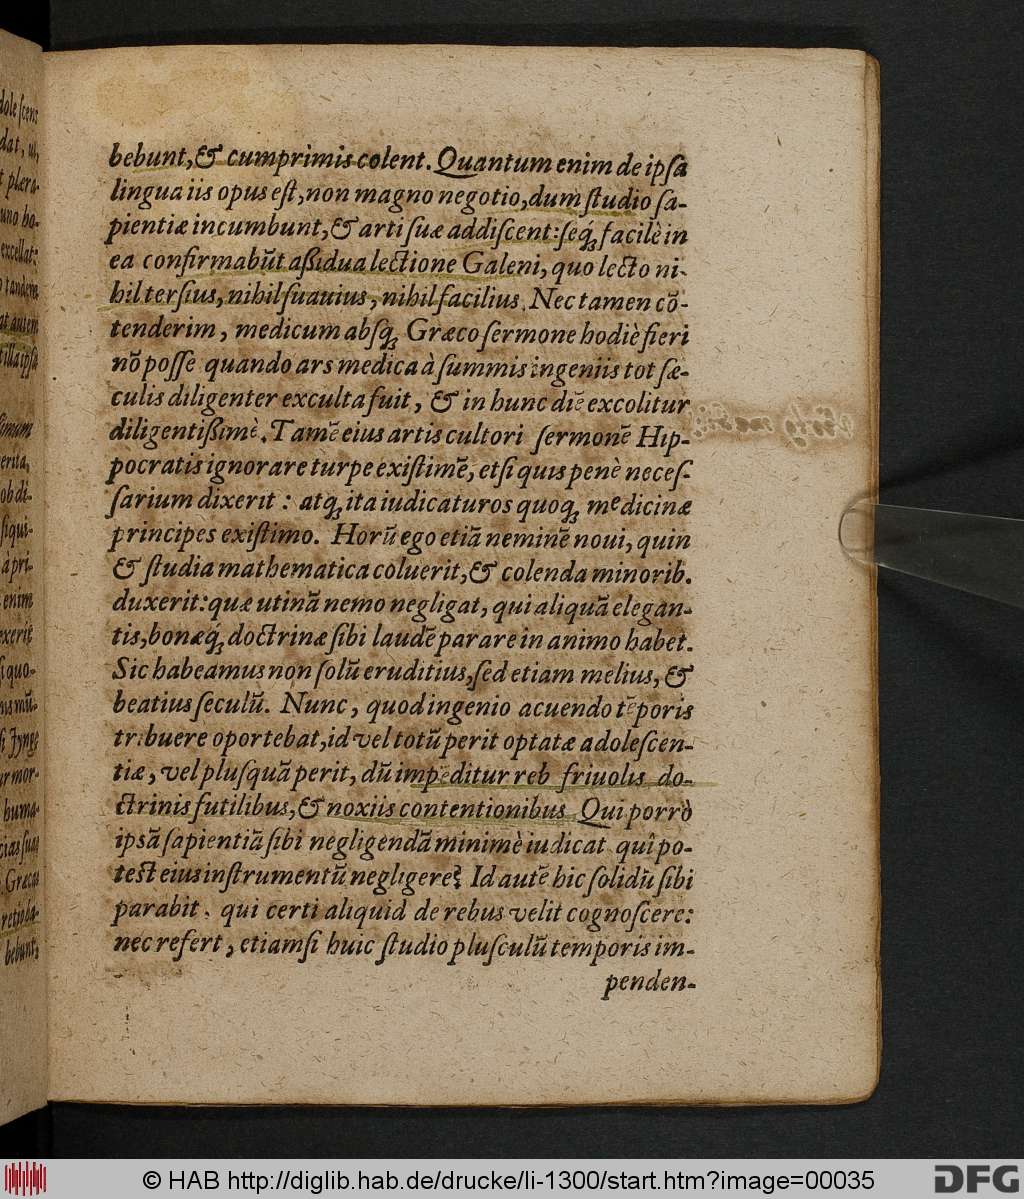 bebunt, & cumprimis colent. Quantum enim de ipſa
lingua iis opus eſt, non magno negotio, dum ſtudio ſa-
pientiæ incumbunt, & arti ſuæ addiſcent: ſeq́; facilè in
ea confirmabūt aßidua lectione Galeni, quo lecto ni-
hil terſius, nihil ſuauius, nihil facilius. Nec tamen cō-
tenderim, medicum abſq; Græco ſermone hodiè fieri
nō poſſe quando ars medica à ſummis ingeniis tot ſæ-
culis diligenter exculta fuit, & in hunc diē excolitur
diligentißimè. Tamē eius artis cultori ſermonē Hip-
pocratis ignorare turpe exiſtimē, etſi quis penè neceſ-
ſarium dixerit: atq; ita iudicaturos quoq; medicinæ
principes exiſtimo. Horū ego etiā neminē noui, quin
& ſtudia mathematica coluerit, & colenda minorib.
duxerit: quæ utinā nemo negligat, qui aliquā elegan-
tis, bonæq́; doctrinæ ſibi laudē parare in animo habet.
Sic habeamus non ſolū eruditius, ſed etiam melius, &
beatius ſeculū. Nunc, quod ingenio acuendo tēporis
tribuere oportebat, id vel totū perit optatæ adoleſcen-
tiæ, vel pluſquā perit, dū impeditur reb friuolis do-
ctrinis futilibus, & noxiis contentionibus Qui porrò
ipsā ſapientiā ſibi negligendā minimè iudicat quî po-
teſt eius inſtrumentū negligere? Id autē hic ſolidū ſibi
parabit, qui certi aliquid de rebus velit cognoſcere:
nec refert, etiamſi huic ſtudio pluſculū temporis im-
penden-
bebunt,
© HAB http://diglib.hab.de/drucke/li-1300/start.htm?image=00035
DFG